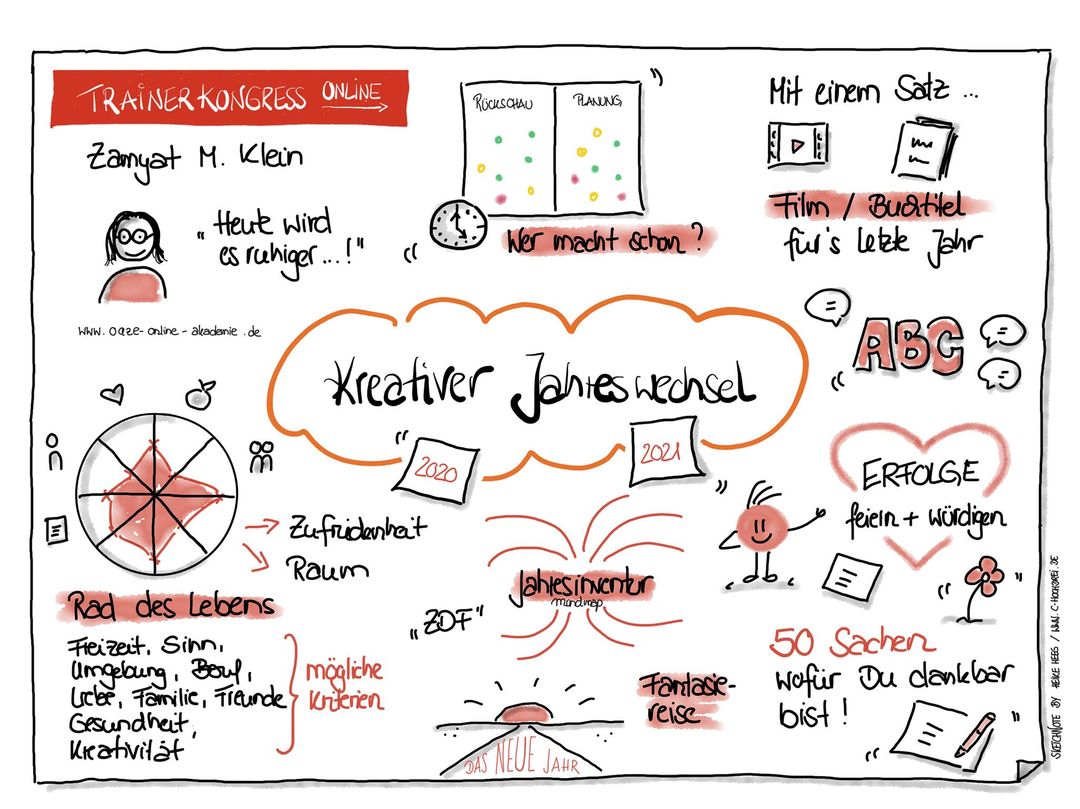 TRAINERKONGRESS ONLINE
Zamyat M. Klein
„Heute wird
es ruhiger...!"
www.oaze-online-akademie.de
RÜCKSCHAU
PLANUNG
Wer macht schon?
Mit einem Satz ...
Film / Buchtitel
für's letzte Jahr
ABC
Kreativer Jahreswechsel
2020
2021
ERFOLGE
feiern + würdigen
Zufriedenheit
Raum
Rad des Lebens
Freizeit, Sinn,
Umgebung, Beruf,
Liebe, Familie, Freunde
Gesundheit,
Kreativität
mögliche
Kriterien
Jahresinventur
mindmap
„ZDF"
Fantasie-
reise
DAS NEUE JAHR
50 Sachen
wofür Du dankbar
bist!
SKETCHNOTE BY HEIKE HEEG / WWW.C-HOCHDREI.DE